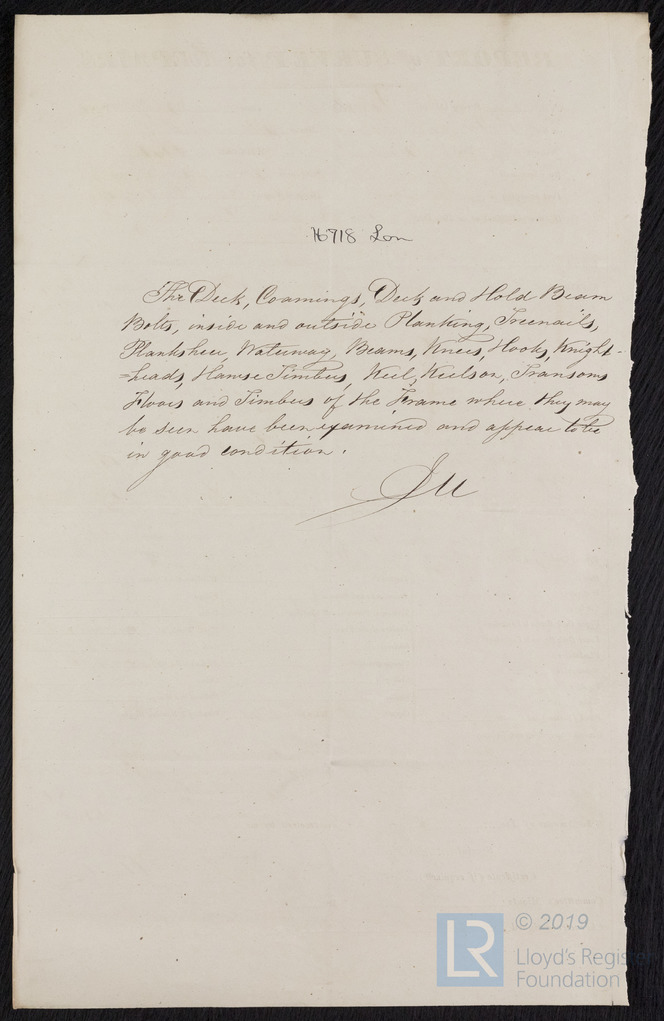 16918 Lon
The Deck, Coamings, Deck and Hold Beam
Bolts, inside and outside Planking, Treenails,
Planksheer, Waterway, Beams, Knees, Hooks, Knight-
=heads, Hawse Timbers, Keel, Keelson, Transoms
Floors and Timbers of the Frame where they may
be seen have been examined and appear to be
in good condition.
© 2019
LR
Lloyd's Register
Foundation